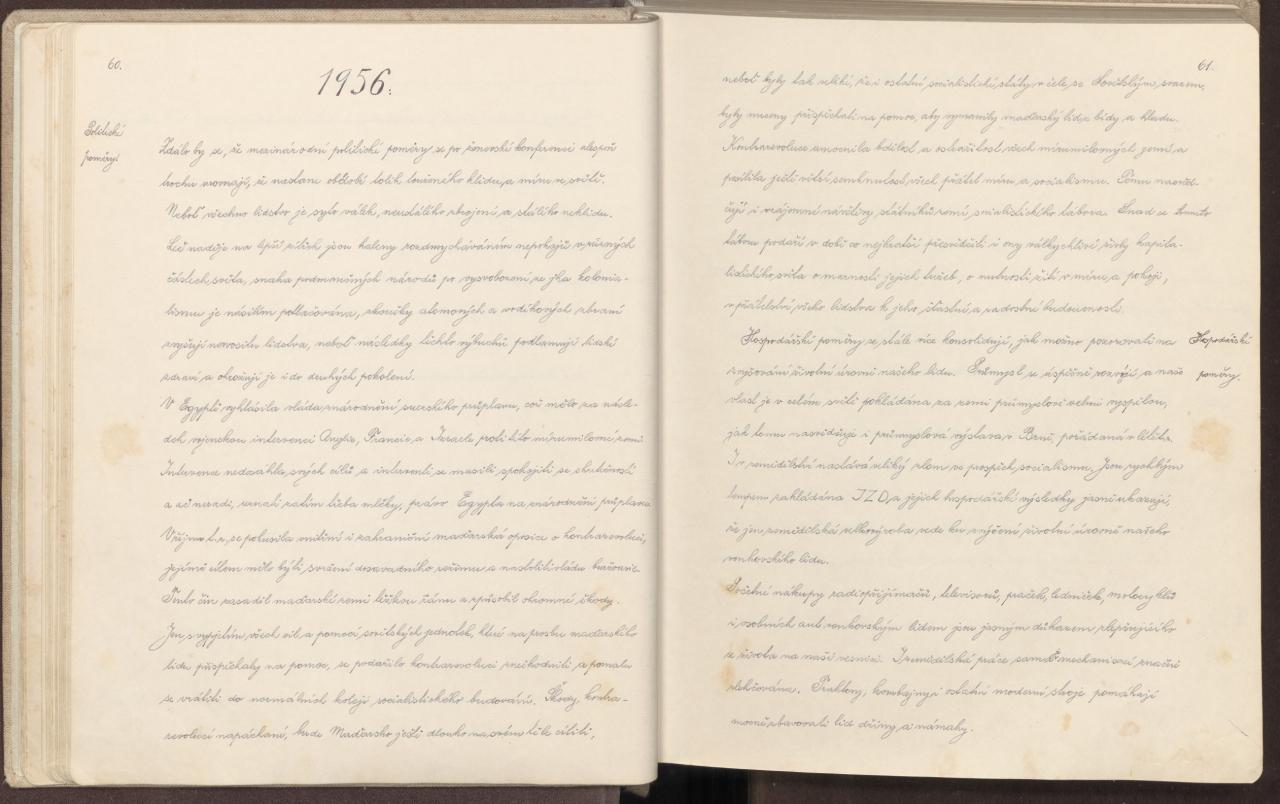 60.
1956.
Politické
poměry:
Zdálo by se, že mezinárodní politické poměry se po ženevské konferenci alespoň
trochu urovnají, že nastane období tolik touženého klidu a míru ve světě.
Neboť všechno lidstvo je syto válek, neustálého zbrojení a stálého neklidu.
Leč naděje na lepší zítřek jsou kaleny rozdmycháváním nepokojů v různých
částech světa, snaha podmaněných národů po vysvobození ze jha kolonia-
lismu je násilím potlačována, zkoušky atomových a vodíkových zbraní
zvyšují nervositu lidstva, neboť následky těchto výbuchů podlamují lidské
zdraví a ohrožují je i do druhých pokolení.
V Egyptě vyhlásila vláda znárodnění suezského průplavu, což mělo za násle-
dek vojenskou intervenci Anglie, Francie a Izraele proti této mírumilovné zemi.
Intervence nedosáhla svých cílů a interventi se museli spokojiti se skutečností
a ač neradi, uznati zatím třeba mlčky, právo Egypta na znárodnění průplavu.
V říjnu t.r. se pokusila vnitřní i zahraniční maďarská oposice o kontrarevoluci,
jejímž cílem mělo býti svržení dosavadního režimu a nastoliti vládu buržoasie.
Tento čin zasadil maďarské zemi těžkou ránu a způsobil ohromné škody.
Jen s vypjetím všech sil a pomocí sovětských jednotek, které na prosbu maďarského
lidu přispěchaly na pomoc, se podařilo kontrarevoluci zneškodniti a pomalu
se vrátiti do normálních kolejí socialistického budování. Škody, kontra-
revolucí napáchané, bude Maďarsko ještě dlouho na svém těle cítiti,
61.
neboť byly tak veliké, že i ostatní socialistické státy v čele se Sovětským svazem,
byly nuceny přispěchati na pomoc, aby vymanily maďarský lid z bídy a hladu.
Kontrarevoluce zmocnila bdělost a ostražitost všech mírumilovných zemí a
posílila ještě větší semknutost všech přátel míru a socialismu. Tomu nasvěd-
čují i vzájemné návštěvy státníků zemí socialistického tábora. Snad se tomuto
táboru podaří v době co nejkratší přesvědčiti i ony válkychtivé živly kapita-
listického světa o marnosti jejich tužeb, o nutnosti žíti v míru a pokoji,
v přátelství všeho lidstva k jeho šťastné a radostné budoucnosti.
Hospodářské
poměry.
Hospodářské poměry se stále více konsolidují, jak možno pozorovati na
zvyšování životní úrovně našeho lidu. Průmysl se úspěšně rozvíjí a naše
vlast je v celém světě pokládána za zemi průmyslově velmi vyspělou,
jak tomu nasvědčuje i průmyslová výstava v Brně, pořádaná v létě t.r.
I v zemědělství nastává veliký zlom ve prospěch socialismu. Jsou rychlým
tempem zakládána JZD, a jejich hospodářské výsledky jasně ukazují,
že jen zemědělská velkovýroba vede ku zvýšení životní úrovně našeho
venkovského lidu.
Početné nákupy radiopřijímačů, televisorů, praček, ledniček, motocyklů
i osobních aut venkovským lidem jsou jasným důkazem zlepšujícího
se života na naší vesnici. I zemědělská práce sama je mechanisací značně
ulehčována. Traktory, kombajny i ostatní moderní stroje pomáhají
mocně zbavovati lid dřiny a námahy.